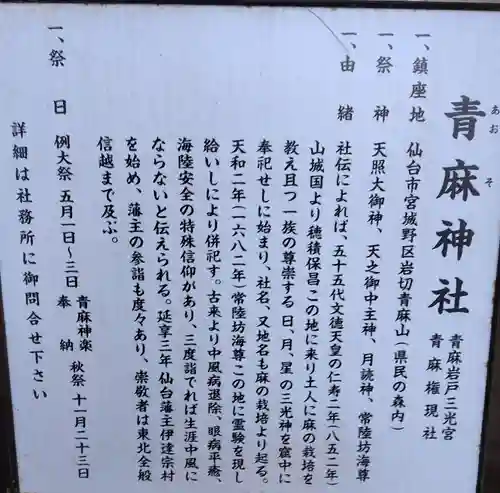 青麻神社
あおそ
青麻岩戸三光宮
青麻権現社
一、鎮座地 仙台市宮城野区岩切青麻山（県民の森内）
一、祭神 天照大御神、天之御中主神、月読神、常陸坊海尊
一、由緒 社伝によれば、五十五代文徳天皇の仁寿二年（八五二年）
山城国より穂積保昌この地に来り土人に麻の栽培を
教え且つ一族の尊崇する日、月、星の三光神を窟中に
奉祀せしに始まり、社名、又地名も麻の栽培より起る。
天和二年（一六八二年）常陸坊海尊この地に霊験を現し
給いしにより併祀す。古来より中風病退除、眼病平癒、
海陸安全の特殊信仰があり、三度詣でれば生涯中風に
ならないと伝えられる。延享三年仙台藩主伊達宗村
を始め、藩主の参詣も度々あり、崇敬者は東北全般
信越まで及ぶ。
一、祭日 例大祭 五月一日～三日 青麻神楽奉納 秋祭 十一月二十三日
詳細は社務所に御問合せ下さい